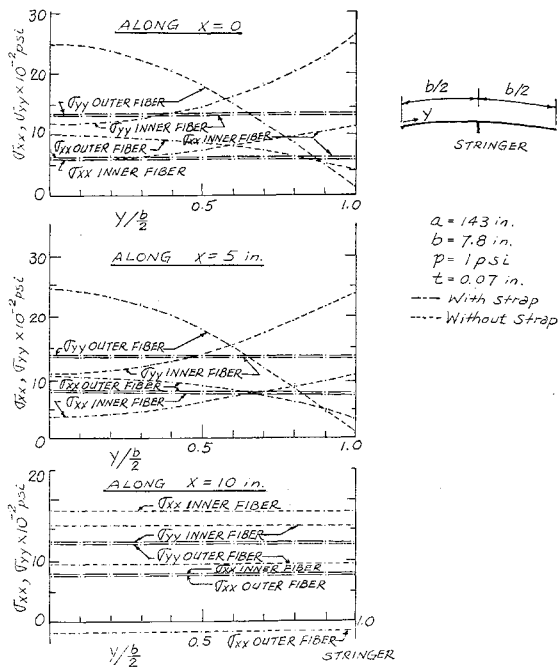 ALONG X=0
σxx, σyy × 10⁻² psi
30
20
10
0
σyy OUTER FIBER
σyy INNER FIBER
σxx OUTER FIBER
σxx INNER FIBER
σxx INNER FIBER
0.5
1.0
Y/b/2
b/2
b/2
Y
STRINGER
a = 143 in.
b = 7.8 in.
p = 1 psi
t = 0.07 in.
With strap
Without strap
ALONG X = 5 in.
σxx, σyy × 10⁻² psi
30
20
10
0
σyy OUTER FIBER
σyy INNER FIBER
σxx OUTER FIBER
σxx INNER FIBER
0.5
1.0
Y/b/2
ALONG X = 10 in.
σxx, σyy × 10⁻² psi
20
10
0
σxx INNER FIBER
σyy INNER FIBER
σyy OUTER FIBER
σxx INNER FIBER
σxx OUTER FIBER
1.0
0.5
σxx OUTER FIBER
Y/b/2
STRINGER